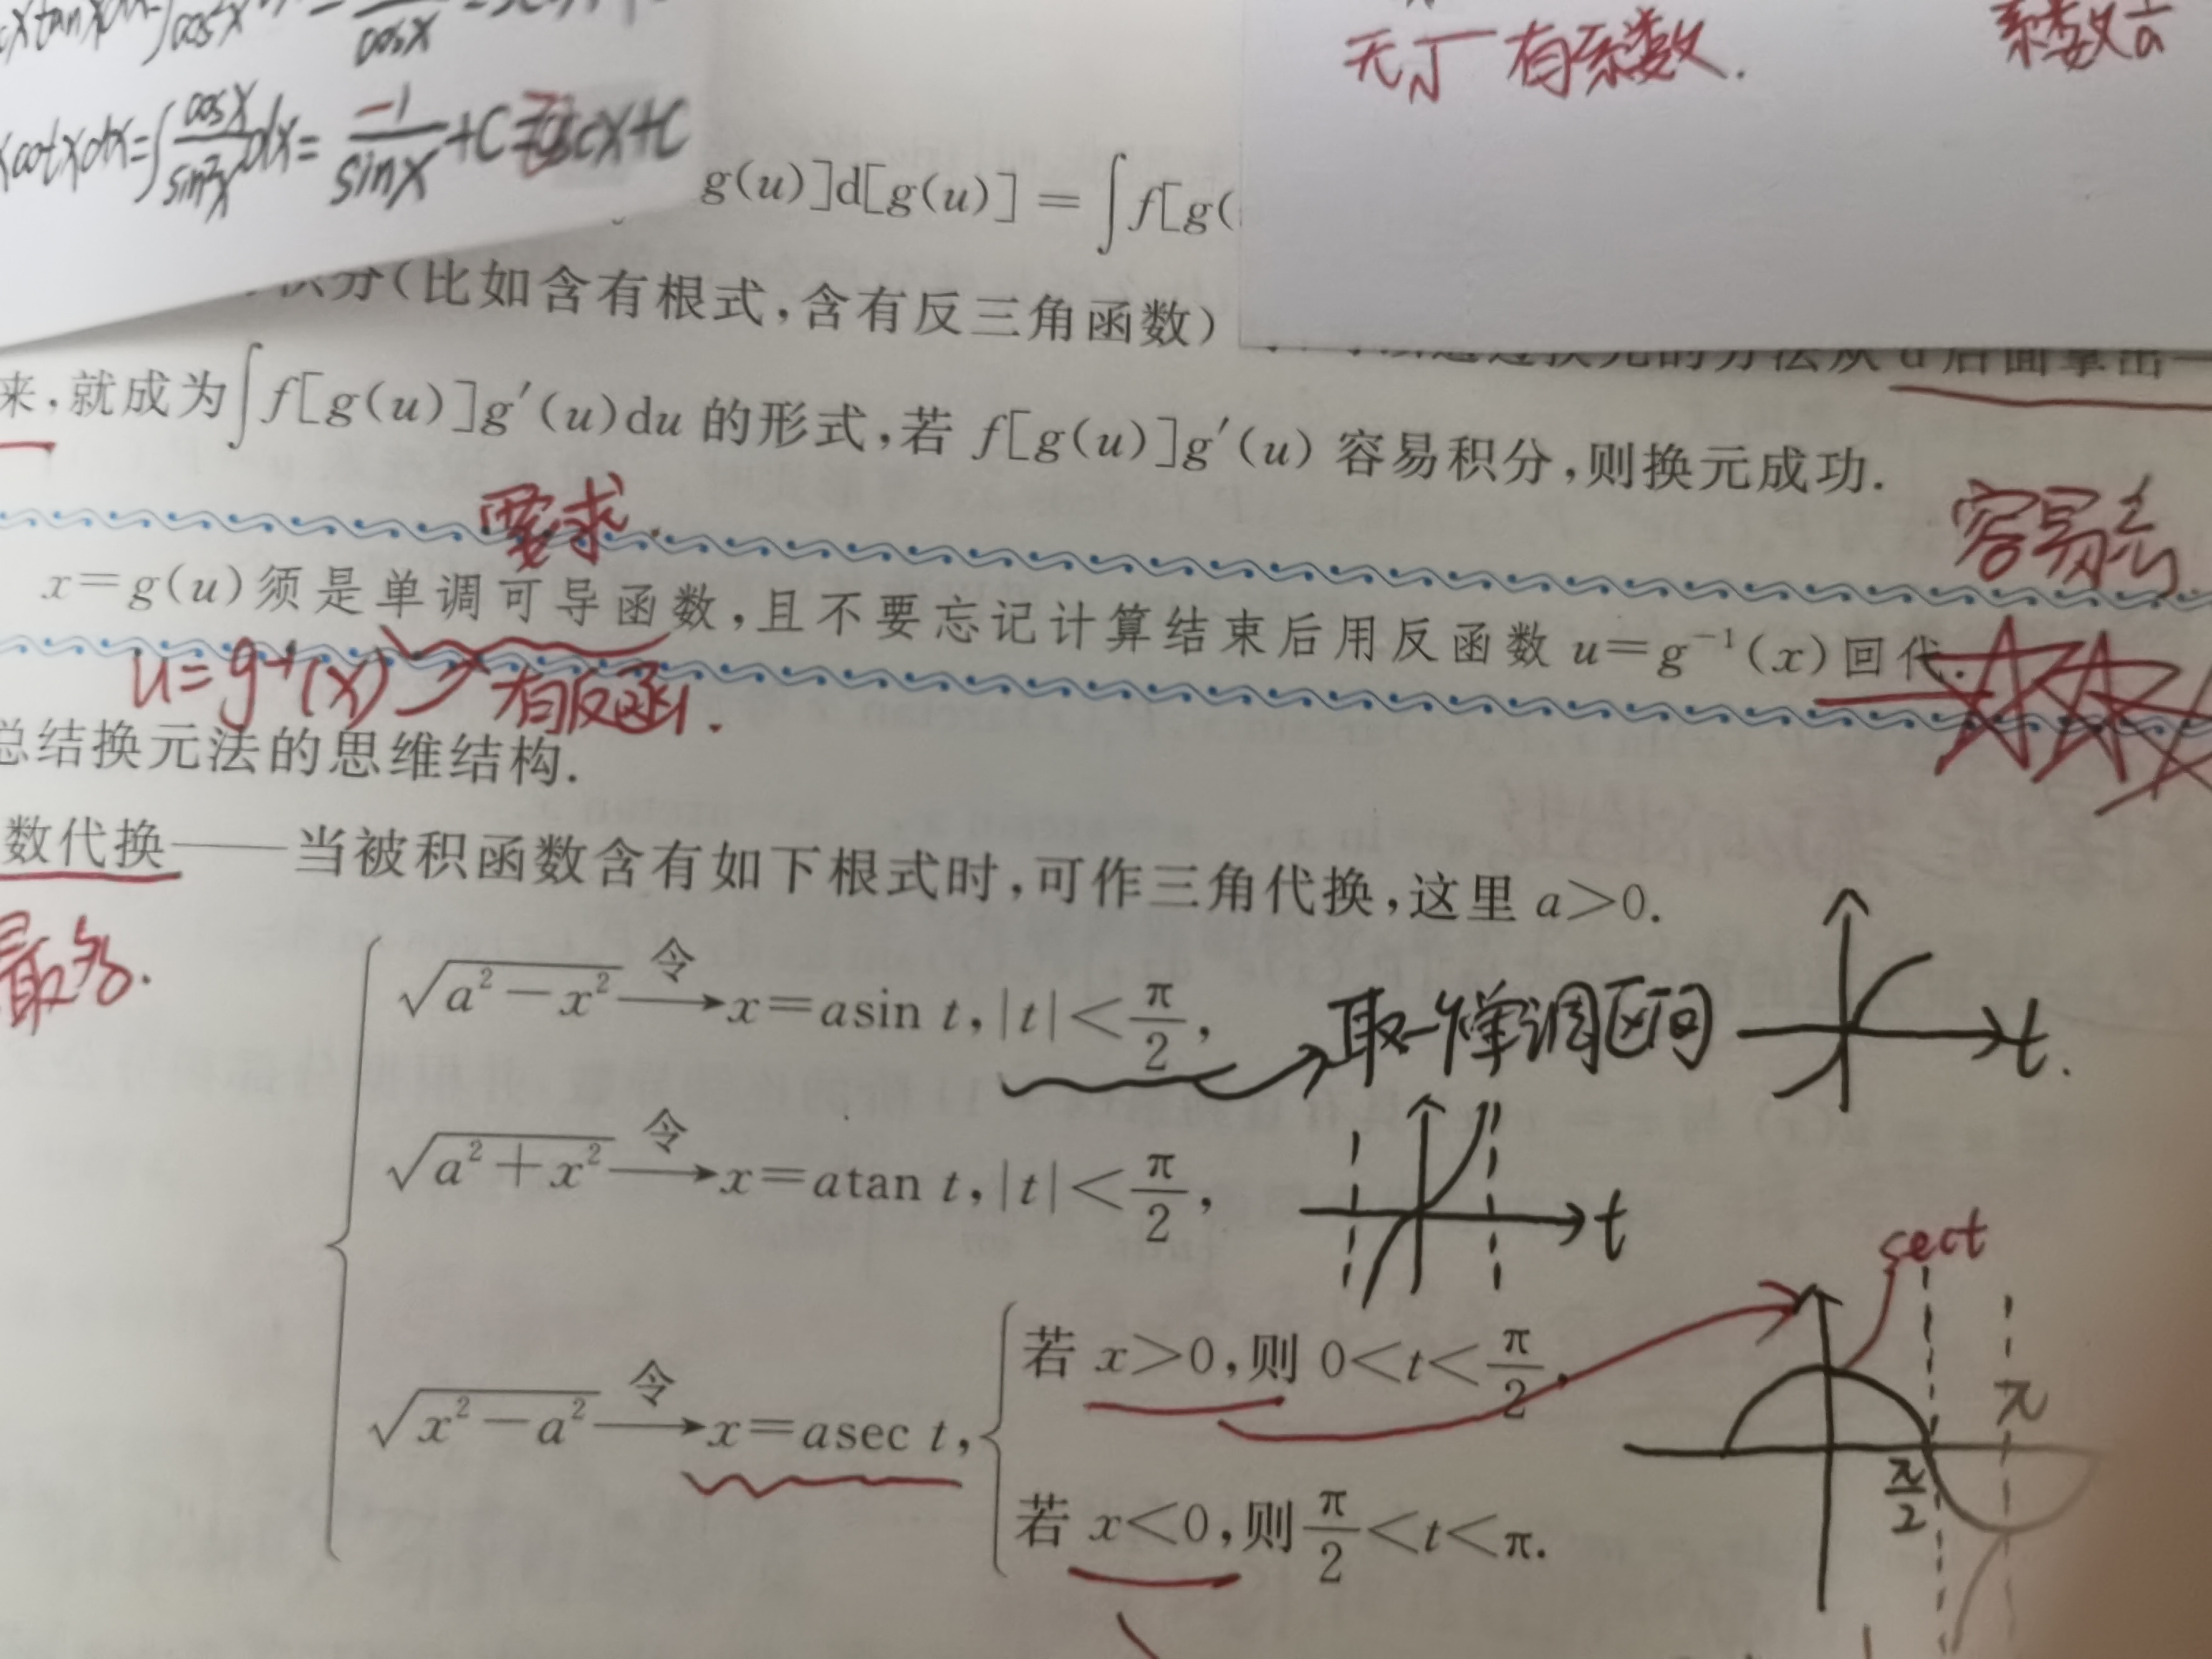 无√ 有系数.
系数1/a
cosx
xcotxdx=∫cosx/sin²x dx= -1/sinx +C=-cscx+C
g(u)]d[g(u)] = ∫f[g(
积分(比如含有根式,含有反三角函数)
后面拿出一
来,就成为∫f[g(u)]g′(u)du 的形式,若 f[g(u)]g′(u) 容易积分,则换元成功.
要求.
容易忘
x=g(u)须是单调可导函数,且不要忘记计算结束后用反函数 u=g⁻¹(x)回代.
u=g⁻¹(x) 有反函.
总结换元法的思维结构.
数代换——当被积函数含有如下根式时,可作三角代换,这里 a>0.
最多.
√(a²−x²) 令→ x=asin t,|t|<π/2, 取一个单调区间 t.
√(a²+x²) 令→ x=atan t,|t|<π/2, t
sect
若 x>0,则 0<t<π/2,
√(x²−a²) 令→ x=asec t,
π
π/2
若 x<0,则 π/2<t<π.